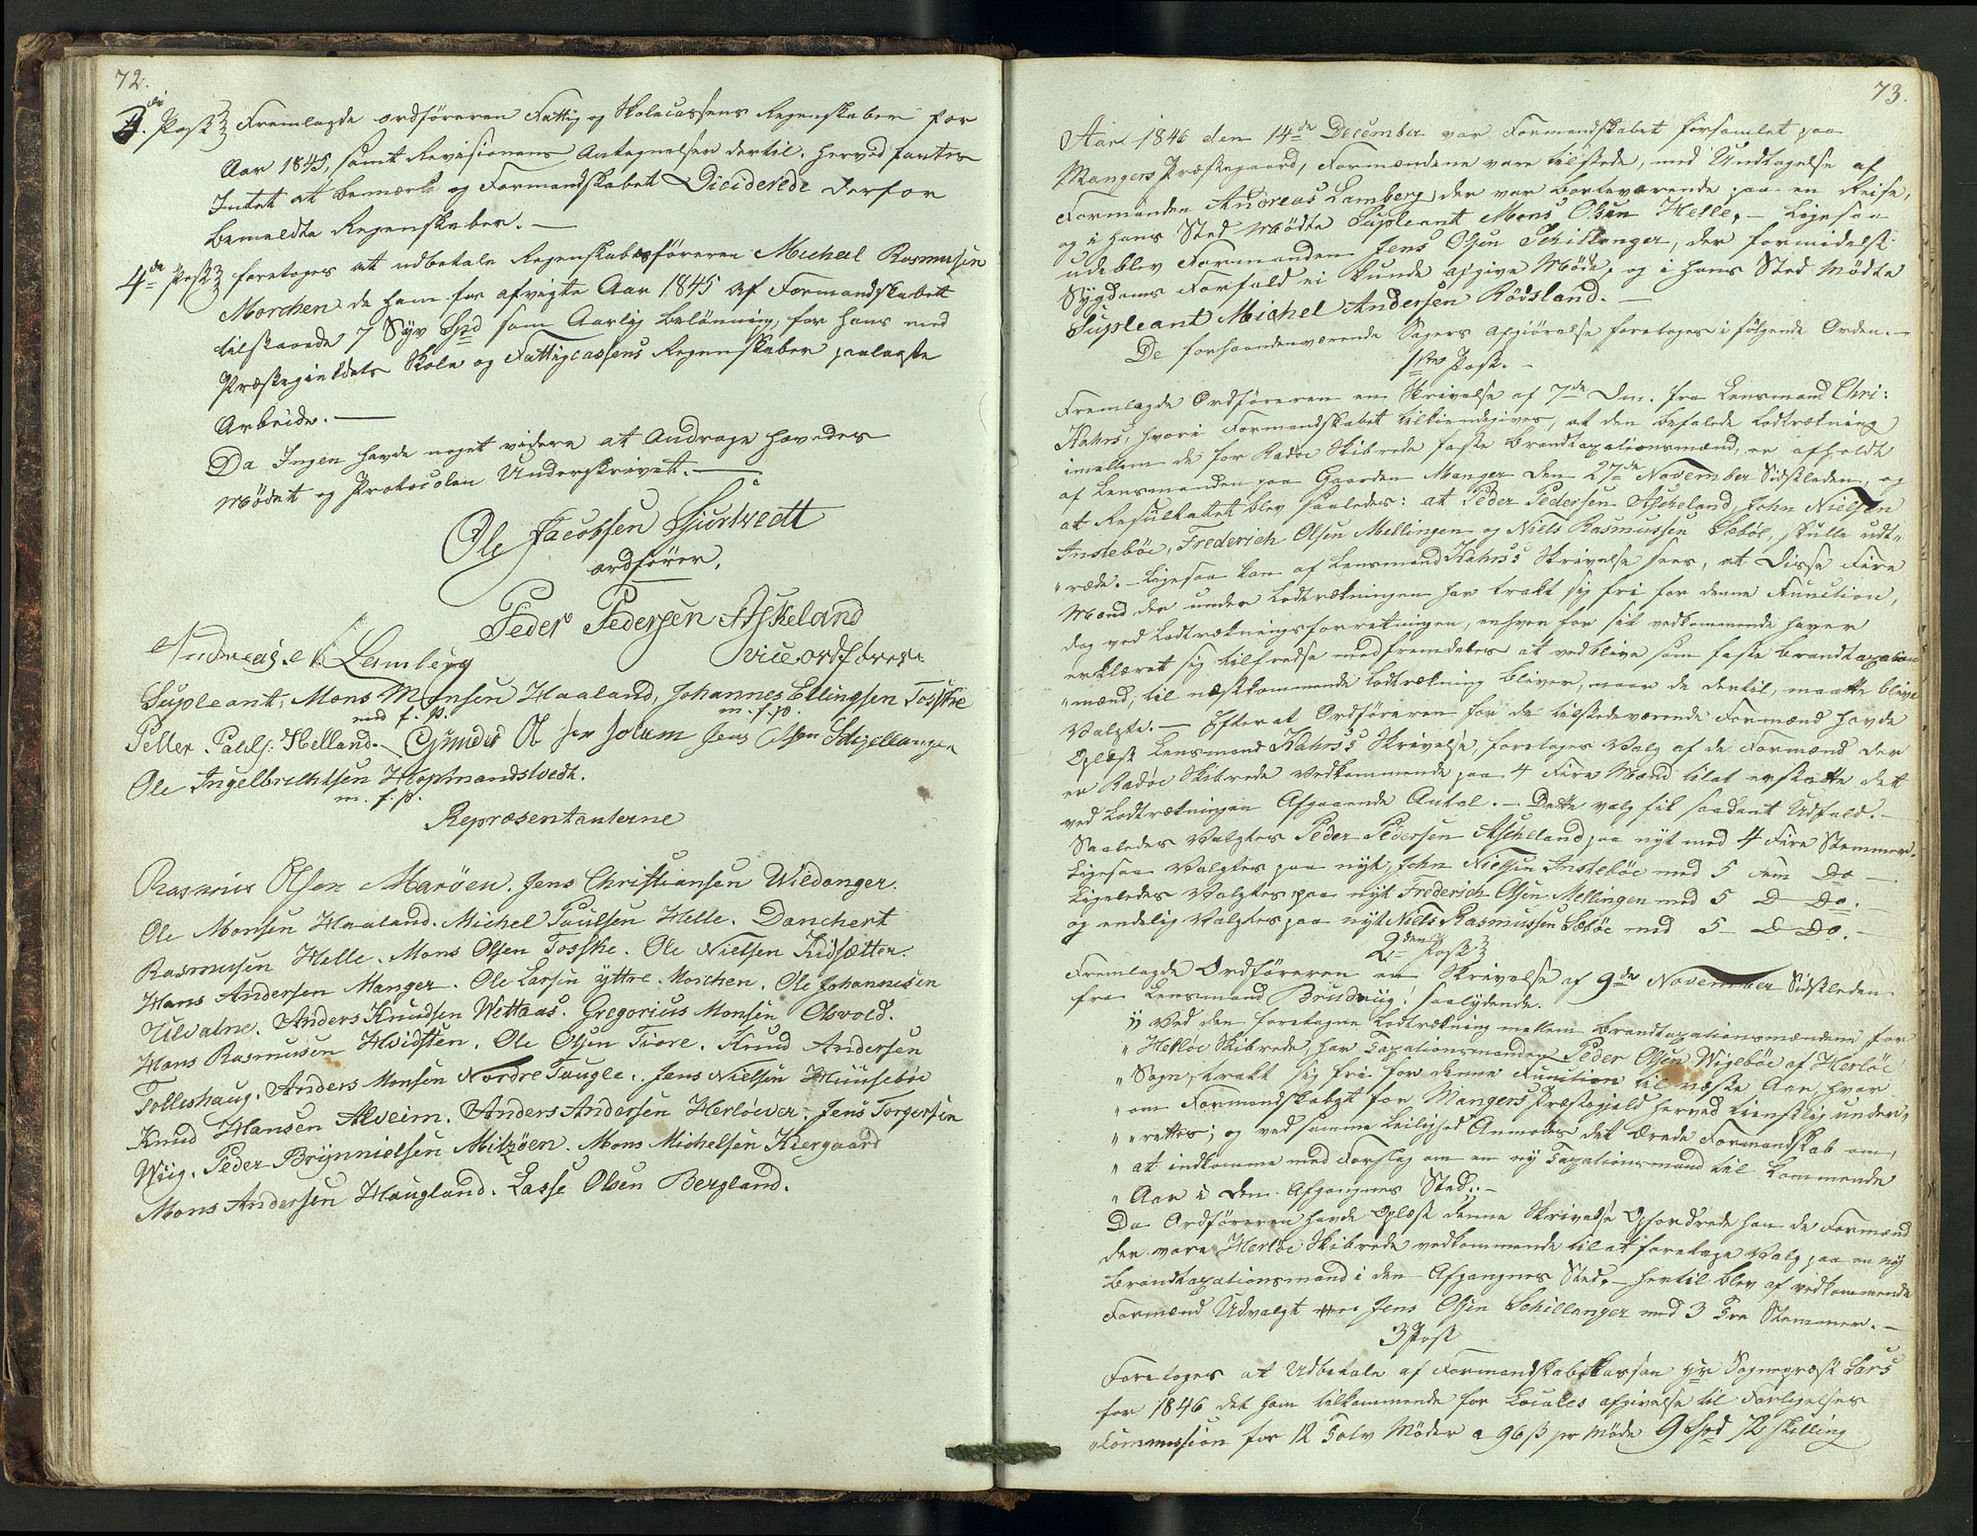 72.
3die Post Fremlagde ordføreren Fattig og Skolecassens Regenskaber for
Aar 1845, samt Revisionens Antegnelser dertil. Herved fantes
Intet at bemærke og Formandskabet Diciderede derfor
bemeldte Regenskaber. —
4de Post foretoges at udbetale Regenskabsføreren Micheel Rasmusen
Morchen de ham for afvigte Aar 1845 af Formandskabet
tilstaaede 7 Syv Spd som Aarlig belønning, for hans med
Præstegieldets Skole og Fattigcassens Regenskaber paalagte
Arbeide. —
Da Ingen havde noget videre at Andrage hævedes
Mødet og Protocolen Underskrivet. —
Ole Jacobsen Sjurtvedt
ordfører.
Peder Pedersen Askeland
viceordfører
Andreas Lamberg
Supleant, Mons Monsen Haaland, Johannes Ellingsen Fosske
med f. P. m. f. P.
Peller Palls: Helland. Ole Solum Jens Olsen Skjellanger
Ole Ingelbrechtsen Hopmandstvedt.
m. f. P.
Repræsentanterne
Rasmus Olsen Marøen. Jens Christiansen Wildanger.
Ole Monsen Haaland. Michel Poulsen Helle. Danchert
Rasmusen Helle. Mons Olsen Fosske. Ole Nielsen Kidsætter.
Hans Andersen Manger. Ole Larsen yttre Morchen. Ole Johannesen
Ulvatne. Anders Knudsen Wettaas. Gregorius Monsen Olsvold.
Hans Rasmusen Hvidsten. Ole Olsen Fiore. Knud Andersen
Folleshaug. Anders Monsen Nordre Taugle. Jens Nielsen Huusebøe
Knud Hansen Alveim. Anders Andersen Herløevær. Jens Torgersen
Wiig. Peder Brynnielsen Miltzøen. Mons Michelsen Kiergaard
Mons Andersen Haugland. Lasse Olsen Bergland.
73.
Aar 1846 den 14de December var Formandskabet forsamlet paa
Mangers Præstegaard, Formændene vare tilstede, med Undtagelse af
Formanden Andreas Lamberg, der var bortværende paa en Reise,
og i hans Sted Mødte Supleant Mons Olsen Helle, — Ligesaa
udeblev Formanden Jens Olsen Schillanger, der formidelst
Sygdoms Forfald ei kunde afgive Møde, og i hans Sted Mødte
Supleant Michel Andersen Rødsland. —
De forhaandenværende Sagers afgiørelse foretoges i følgende Orden. —
1ste Post. —
Fremlagde Ordføreren en Skrivelse af 7de Dm. fra Lensmand Chri:
Kahrs, hvori Formandskabet tilkiendegives, at den befalede Lodtrækning
imellem de for Radøe Skibrede faste brandtaxationsmænd, er afholdt
af Lensmanden paa Gaarden Manger den 27de November Sidstleden, og
at Resultatet blev saaledes: at Peder Pedersen Ascheland, John Nielsen
Instebøe, Frederich Olsen Mellingen og Niels Rasmussen Sæbøe, skulle udt-
„ræde. — Ligesaa kan af Lensmand Kahrs's Skrivelse sees, at disse Fire
Mænd der under Lodtrækningen har trakt sig fri for denne Function,
dog ved Lodtrækningsforretningen, enhver for sit vedkommende haver
erklæret sig tilfredse med fremdeles at vedblive som faste brandtaxations
„mænd, til næstkommende Lodtrækning bliver, naar de dertil maatte blive
Valgte. — Efterat Ordføreren for de tilstedeværende Formænd havde
Oplæst Lensmand Kahrs's Skrivelse, foretoges Valg af de Formænd der
er Radøe Skibrede vedkommende paa 4 Fire Mænd til at erstatte det
ved Lodtrækningen Afgaaende Antal. — Dette valg fik saadant Udfald. —
Saaledes Valgtes Peder Pedersen Ascheland paa nyt med 4 Fire Stemmer.
Ligesaa Valgtes paa nyt, John Nielsen Instebøe med 5 Fem Do —
Ligeledes Valgtes paa nyt Frederich Olsen Mellingen med 5 D Do.
og endelig Valgtes paa nyt Niels Rasmussen Sæbøe med 5 D Do. —
2den Post
Fremlagde Ordføreren en Skrivelse af 9de November Sidstleden
fra Lensmand Brudviig: saalydende.
„ Ved den foretagne Lodtrækning mellem Brandtaxationsmændene for
„ Herløe Skibrede, har Taxationsmanden Peder Olsen Wigebøe af Herløe
„ Sogn, trakt sig fri for denne Function til næste Aar, hvor
„ om Formandskabet for Mangers Præstegjeld herved tienstlig under-
„ „rettes; og ved samme Leilighed Anmodes det ærede Formandskab om,
„ at indkomme med Forslag om en ny Taxationsmand til kommende
„ Aar i den Afgangnes Sted. —
Da Ordføreren havde Oplæst denne Skrivelse Opfordrede han de Formænd
der vare Herløe Skibrede vedkommende til at foretage Valg paa en ny
brandtaxationsmand i den Afgangnes Sted, — hertil blev af vedkommende
Formænd Udvalgt Jens Olsen Schillanger med 3 Tre Stemmer. —
3 Post
Foretoges at Udbetale af Formandskabskassen Hr Sognepræst Lars
for 1846 det ham tilkommende for Locales afgivelse til Forligelses
„commission for 12 Tolv Møder a 96 ß pr Møde 9 Spd 72 skilling